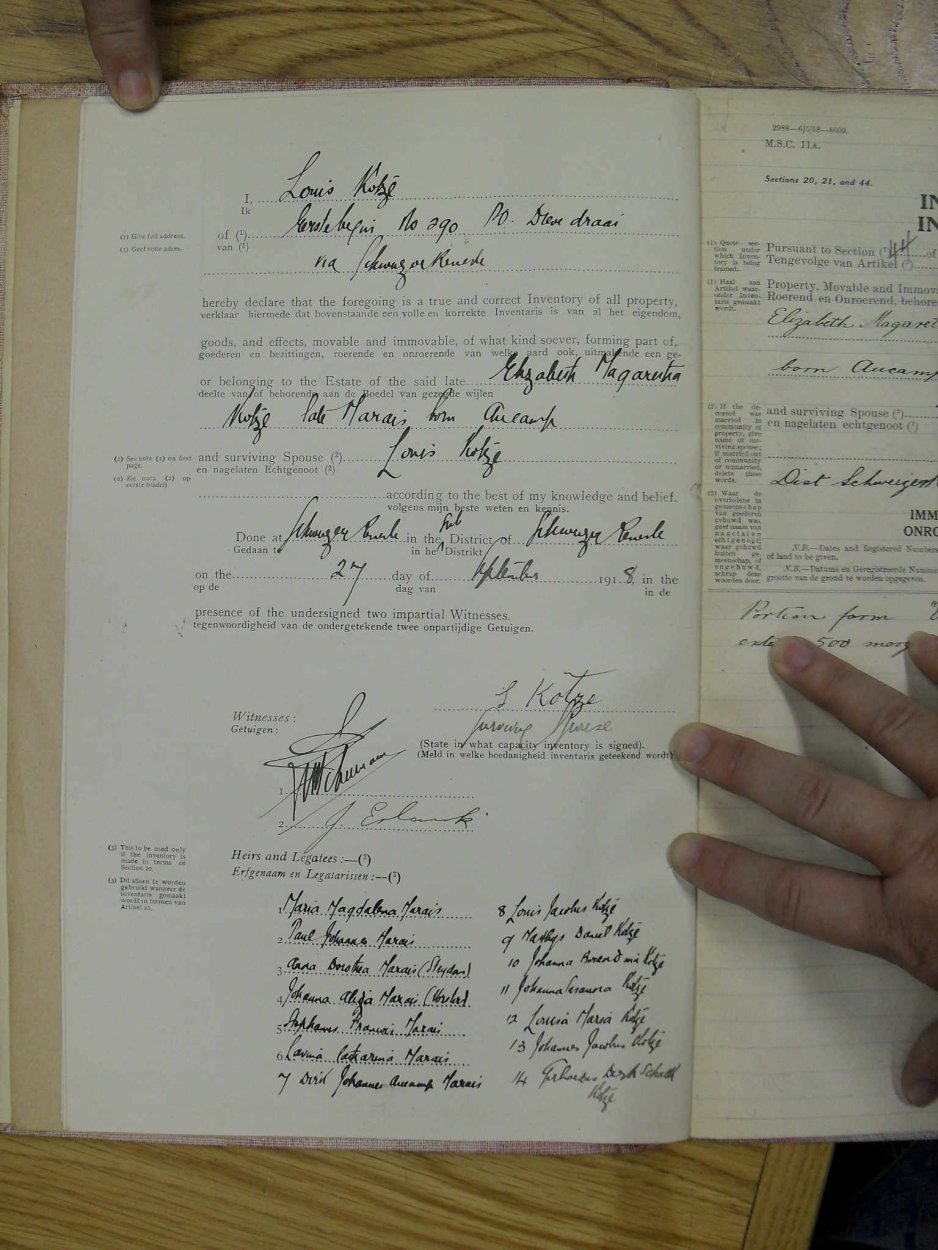 I, Louis Kotzé
Ik
(1) Give full address.
(1) Geef volle adres.
of (1) Eerstebegin No 290 PO. Drie draai
van (1)
via Schweizer Reneke
hereby declare that the foregoing is a true and correct Inventory of all property,
verklaar hiermede dat bovenstaande een volle en korrekte Inventaris is van al het eigendom,
goods, and effects, movable and immovable, of what kind soever, forming part of,
goederen en bezittingen, roerende en onroerende van welke aard ook, uitmakende een ge-
or belonging to the Estate of the said late Elizabeth Magaretha
deelte van of behorende aan de Boedel van gezegde wijlen
Kotze late Marais born Aucamp
(2) See note (2) on first page.
(2) Zie nota (2) op eerste bladzij
and surviving Spouse (2) Louis Kotzé
en nagelaten Echtgenoot (2)
according to the best of my knowledge and belief.
volgens mijn beste weten en kennis.
Done at Schweizer Reneke in the Sub District of Schweizer Reneke
Gedaan te in het Distrikt
on the 27 day of September 1918, in the
op de dag van in de
presence of the undersigned two impartial Witnesses.
tegenwoordigheid van de ondergetekende twee onpartijdige Getuigen.
L Kotze
Surviving Spouse
Witnesses:
Getuigen:
(State in what capacity inventory is signed).
(Meld in welke hoedanigheid inventaris geteekend wordt)
1.
2. J
(3) This to be used only if the inventory is made in terms of Section 20.
(3) Dit alleen te worden gebruikt wanneer de Inventaris gemaakt wordt in termen van Artikel 20.
Heirs and Legatees:—(3)
Erfgenaam en Legatarissen:—(3)
1. Maria Magdalena Marais
2. Paul Johannes Marais
3. Anna Dorothea Marais (Strydom)
4. Johanna Aletta Marais
5. Stephanus Francois Marais
6. Lavina Catharina Marais
7 Dirk Johannes Aucamp Marais
8 Louis Jacobus Kotzé
9 Mathys Daniel Kotzé
10 Johanna Kotzé
11 Johanna Susanna Kotzé
12 Louisa Maria Kotzé
13 Johannes Jacobus Kotzé
14 Gerhardus Derk Schalk
Kotzé
2988—6/5/18—8000.
M.S.C. 11A.
Sections 20, 21, and 44.
IN
IN
(1) Quote section under which Inventory is being framed.
(1) Haal aan Artikel waaronder Inventaris gemaakt wordt.
Pursuant to Section (1) 44 of
Tengevolge van Artikel (1)
Property, Movable and Immov
Roerend en Onroerend, behore
Elizabeth Magaret
born Aucamp
(2) If the deceased was married in community of property, give name of surviving spouse; if married out of community or unmarried, delete these words.
(2) Waar de overledene in gemeenschap van goederen gehuwd was, geef naam van nagelaten echtgenoot; waar gehuwd buiten gemeenschap, of ongehuwd, schrap deze woorden.
and surviving Spouse (2)
en nagelaten echtgenoot (2)
Dist Schweizer
IMM
ONRO
N.B.—Dates and Registered Numbers
of land to be given.
N.B.—Datums en Geregistreerde Nummers
grootte van de grond te worden opgegeven.
Portion farm
500 morg